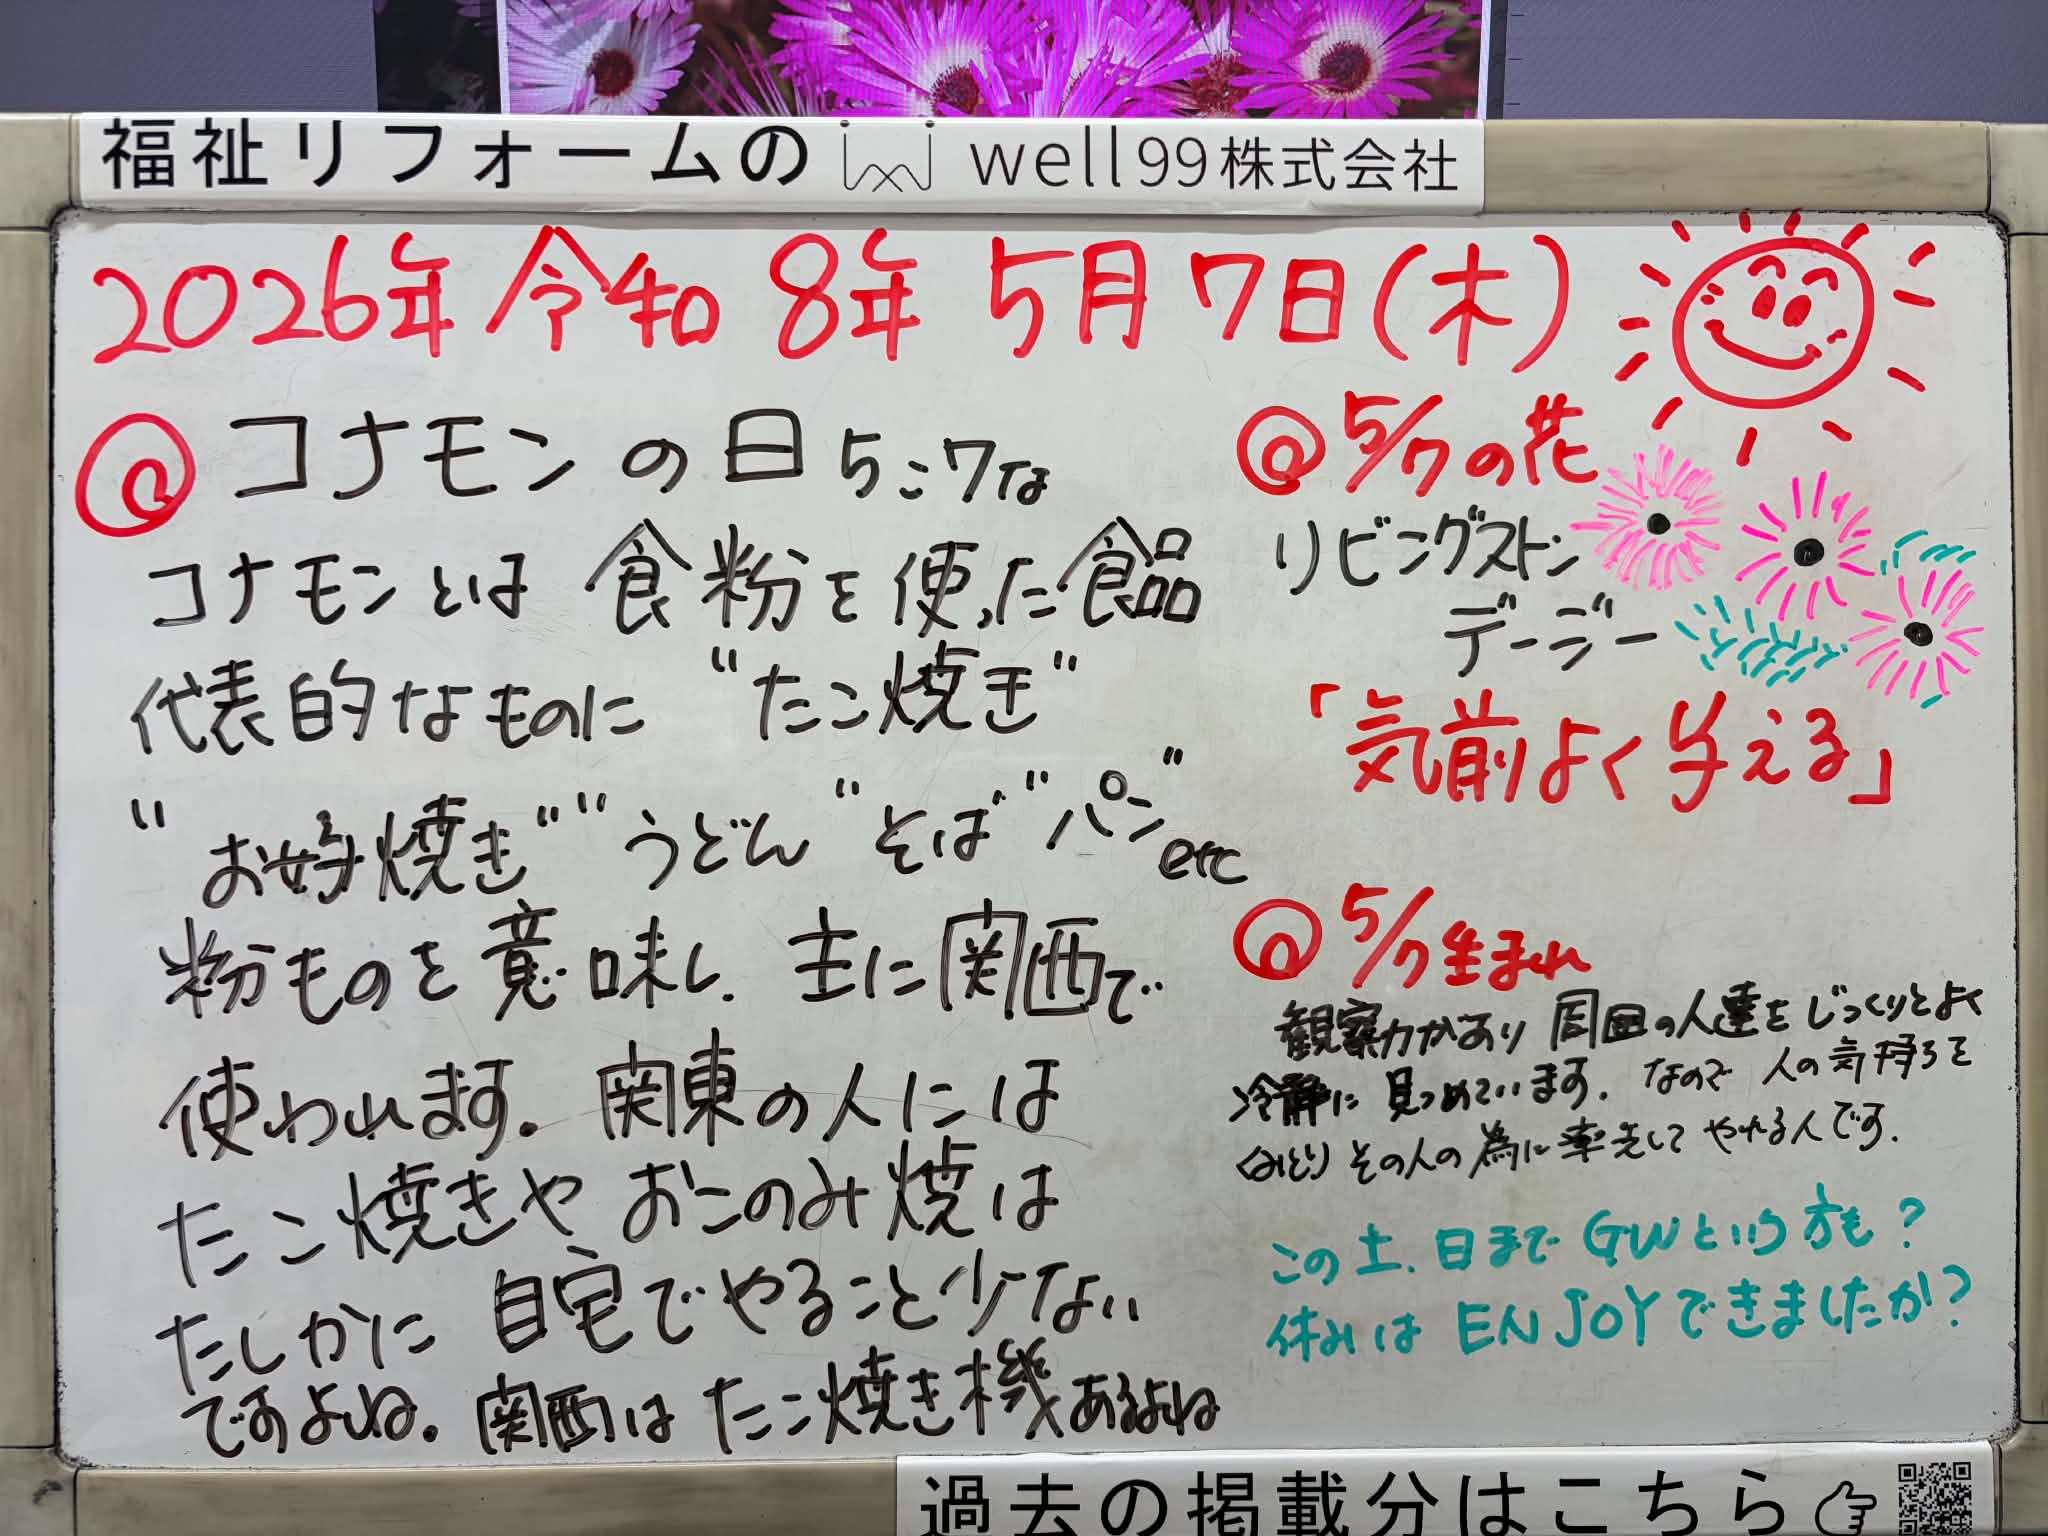 福祉リフォームの well99株式会社
2026年 令和8年 5月7日(木)
コナモンの日 5こ7な
コナモンとは 食粉を使った食品
代表的なものに "たこ焼き"
"お好焼き""うどん"そば"パン"etc
粉ものを意味し、主に関西で
使われます。関東の人には
たこ焼きや おこのみ焼は
たしかに 自宅でやること少ない
ですよね。関西は たこ焼き機あるよね
5/7の花
リビングストン
デージー
「気前よく与える」
5/7生まれ
観察力があり 周囲の人達を じっくりとよく
冷静に 見つめています。なので 人の気持ちを
くみとり その人の為に率先して やれる人です。
この土、日まで GWという方も?
休みは ENJOYできましたか?
過去の掲載分はこちら